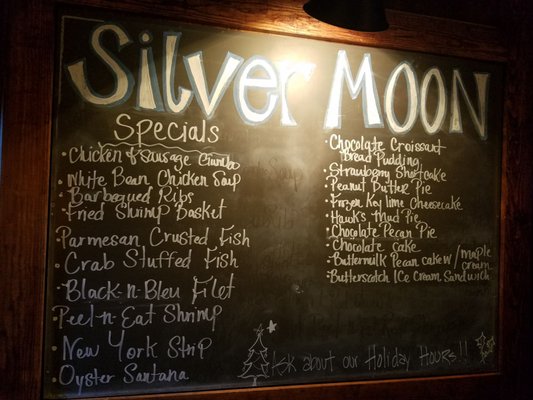 Silver Moon
Specials
· Chicken & Sausage Gumbo
· White Bean Chicken Soup
· Barbequed Ribs
· Fried Shrimp Basket
· Parmesan Crusted Fish
· Crab Stuffed Fish
· Black-n-Bleu Filet
· Peel-n-Eat Shrimp
· New York Strip
· Oyster Santana
· Chocolate Croissant
Bread Pudding
· Strawberry Shortcake
· Peanut Butter Pie
· Frozen Key lime Cheesecake
· Hawk's Mud Pie
· Chocolate Pecan Pie
· Chocolate Cake
· Buttermilk Pecan cake w/ maple cream
· Butterscotch Ice Cream Sandwich
Ask about our Holiday Hours!!